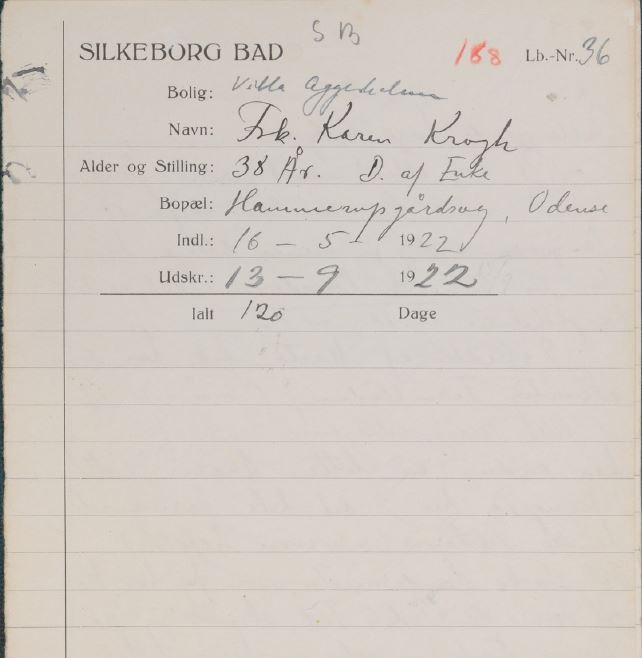 SB
SILKEBORG BAD 188 Lb.-Nr. 36
Bolig: Villa
Navn: Frk. Karen Krogh
Alder og Stilling: 38 År. D. af Enke
Bopæl: Hammerupgårdsvej, Odense
Indl.: 16 - 5 - 1922
Udskr.: 13 - 9 1922
Ialt 120 Dage